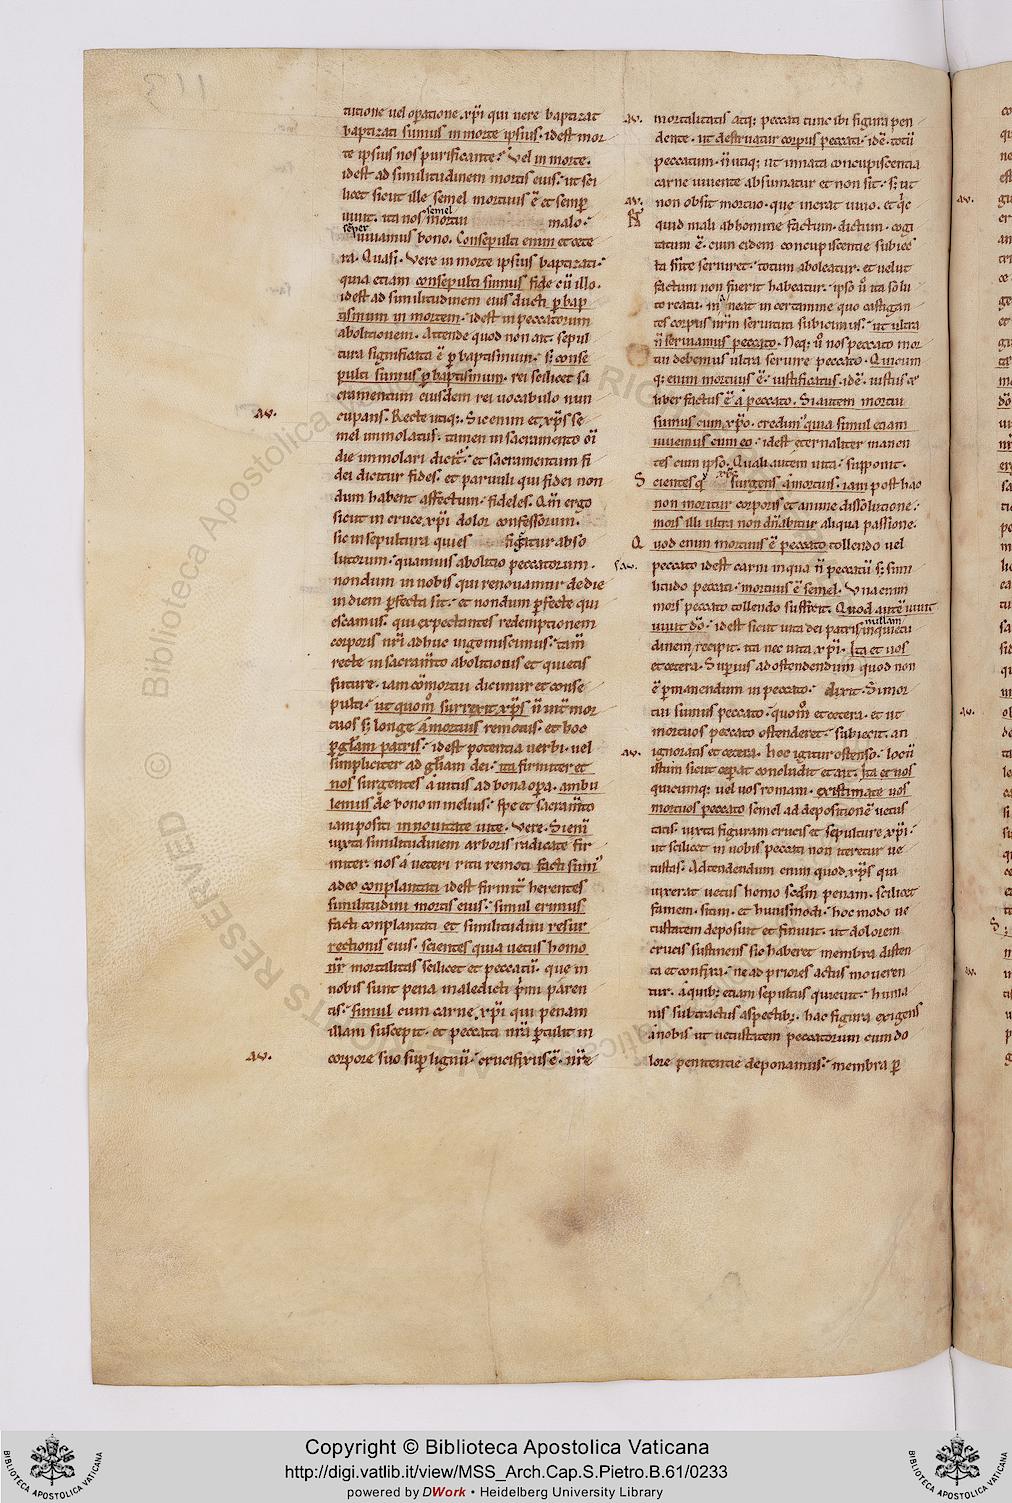 tutione uel oꝑatione xp̄i qui uere baptizat
baptizati sumus in morte ipsius. idest mor
te ipsius nos purificante. Vel in morte.
idest ad similitudinem mortis eius. ut sci
licet sicut ille semel mortuus ē et semꝑ
uiuit. ita nos semel mortui malo.
semper uiuamus bono. Consepulti enim et cete
ra. Quasi. Vere in morte ipsius baptizati.
quia etiam consepulti sumus fide cū illo.
idest ad similitudinem eius ducti ꝑ bap
tismum in mortem. idest in peccatorum
abolitionem. Attende quod non ait. sepul
tura significata ē ꝑ baptismum. s; conse
pulti sumus ꝑ baptismum. rei scilicet sa
cramentum eiusdem rei uocabulo nun
cupans. Recte utiq;. Sic enim et xp̄s se
mel immolatus. tamen in sacramento oī
die immolari dicit̄. et sacramentum fi
dei dicitur fides. et paruuli qui fidei non
dum habent affectum. fideles. Qm̄ ergo
sicut in cruce xp̄i dolor confessorum.
sic in sepultura quies figitur abso
lutorum. quamuis abolitio peccatorum.
nondum in nobis qui renouamur de die
in diem ꝑfecta sit. et nondum ꝑfecte qui
escamus. qui expectantes redemptionem
corporis nr̄i adhuc ingemiscimus. tam̄
recte in sacram̄to abolitionis et quietis
future. iam cōmortui dicimur et conse
pulti. ut quom̊ surrexit xp̄s n̄ int̄ mor
tuos s; longe a mortuis remotus. et hoc
ꝑ gl̄am patris. idest potentia uerbi. uel
simpliciter ad gl̄iam dei. ita firmiter et
nos surgentes a uitiis ad bona oꝑa. ambu
lemus de bono in melius. spe et sacram̄to
iam positi in nouitate uite. Vere. Si enī
iuxta similitudinem arboris radicate fir
miter. nos a ueteri ritu remoti facti sum᷒
adeo conplantati idest firmit̄ herentes
similitudini mortis eius. simul erimus
facti conplantati et similitudini resur
rectionis eius. scientes quia uetus homo
nr̄ mortalitas scilicet et peccatū. que in
nobis sunt pena maledicti p̄mi paren
tis. simul cum carne xp̄i qui penam
illam suscepit. et peccata nr̄a ꝑtulit in
corpore suo suꝑ lignū. crucifixus ē. nr̄e
mortalitatis atq; peccati tunc ibi figura pen
dente. ut destruatur corpus peccati. idē totū
peccatum. n̄ utiq; ut innata concupiscentia
carne uiuente absumatur et non sit. s; ut
non obsit mortuo. que inerat uiuo. et q̇c
quid mali ab homine factum. dictum. cogi
tatum ē. cum eidem concupiscentie subiec
ta m̄te seruiret. totum aboleatur. et uelut
factum non fuerit habeatur. ipso ū ita solu
to reatu. maneat in certamine quo castigan
tes corpus nr̄m seruituti subicimus. ut ultra
n̄ seruiamus peccato. Neq; ū nos peccato mor
tui debemus ultra seruire peccato. Quicum
q; enim mortuus ē. iustificatus. idē. iustus et
liber factus ē a peccato. Si autem mortui
sumus cum xp̄o. credim᷒ quia simul etiam
uiuemus cum eo. idest eternaliter manen
tes cum ipso. Quali autem uita. supponit.
Scientes q̄ xp̄s surgens a mortuis. iam post hac
non moritur corporis et anime dissolutione.
mors illi ultra non dn̄abitur aliqua passione.
Quod enim mortuus ē peccato tollendo uel
peccato idest carni in qua n̄ peccatū s; simi
litudo peccati. mortuus ē semel. Vna enim
mors peccato tollendo suffecit. Quod autē uiuit
uiuit dō. idest sicut uita dei patris nullam inquietu
dinem recipit. ita nec uita xp̄i. Ita et uos
et cetera. Superius ad ostendendum quod non
ē ꝑmanendum in peccato. dixit. Si mor
tui sumus peccato. quom̊ et cetera. et ut
mortuos peccato ostenderet. subiecit. an
ignoratis et cetera. hoc igitur ostenso. locū
istum sicut ceperat concludit et ait. Ita et uos
quicumq; uel uos romani. existimate uos
mortuos peccato semel ad depositionē uetus
tatis. iuxta figuram crucis et sepulture xp̄i.
ut scilicet in uobis peccati non iteretur ue
tustas. Adtendendum enim quod xp̄s qui
uixerat uetus homo scdm penam. scilicet
famem. sitim. et huiusmodi. hoc modo ue
tustatem deposuit et finiuit. ut dolorem
crucis sustinens sic haberet membra disten
ta et confixa. ne ad priores actus moueren
tur. a quib; etiam sepultus quieuit. huma
nis subtractus aspectib;. hac figura exigens
a nobis ut uetustatem peccatorum cum do
lore penitentie deponamus. membra ꝑ
Copyright © Biblioteca Apostolica Vaticana
http://digi.vatlib.it/view/MSS_Arch.Cap.S.Pietro.B.61/0233
powered by DWork • Heidelberg University Library